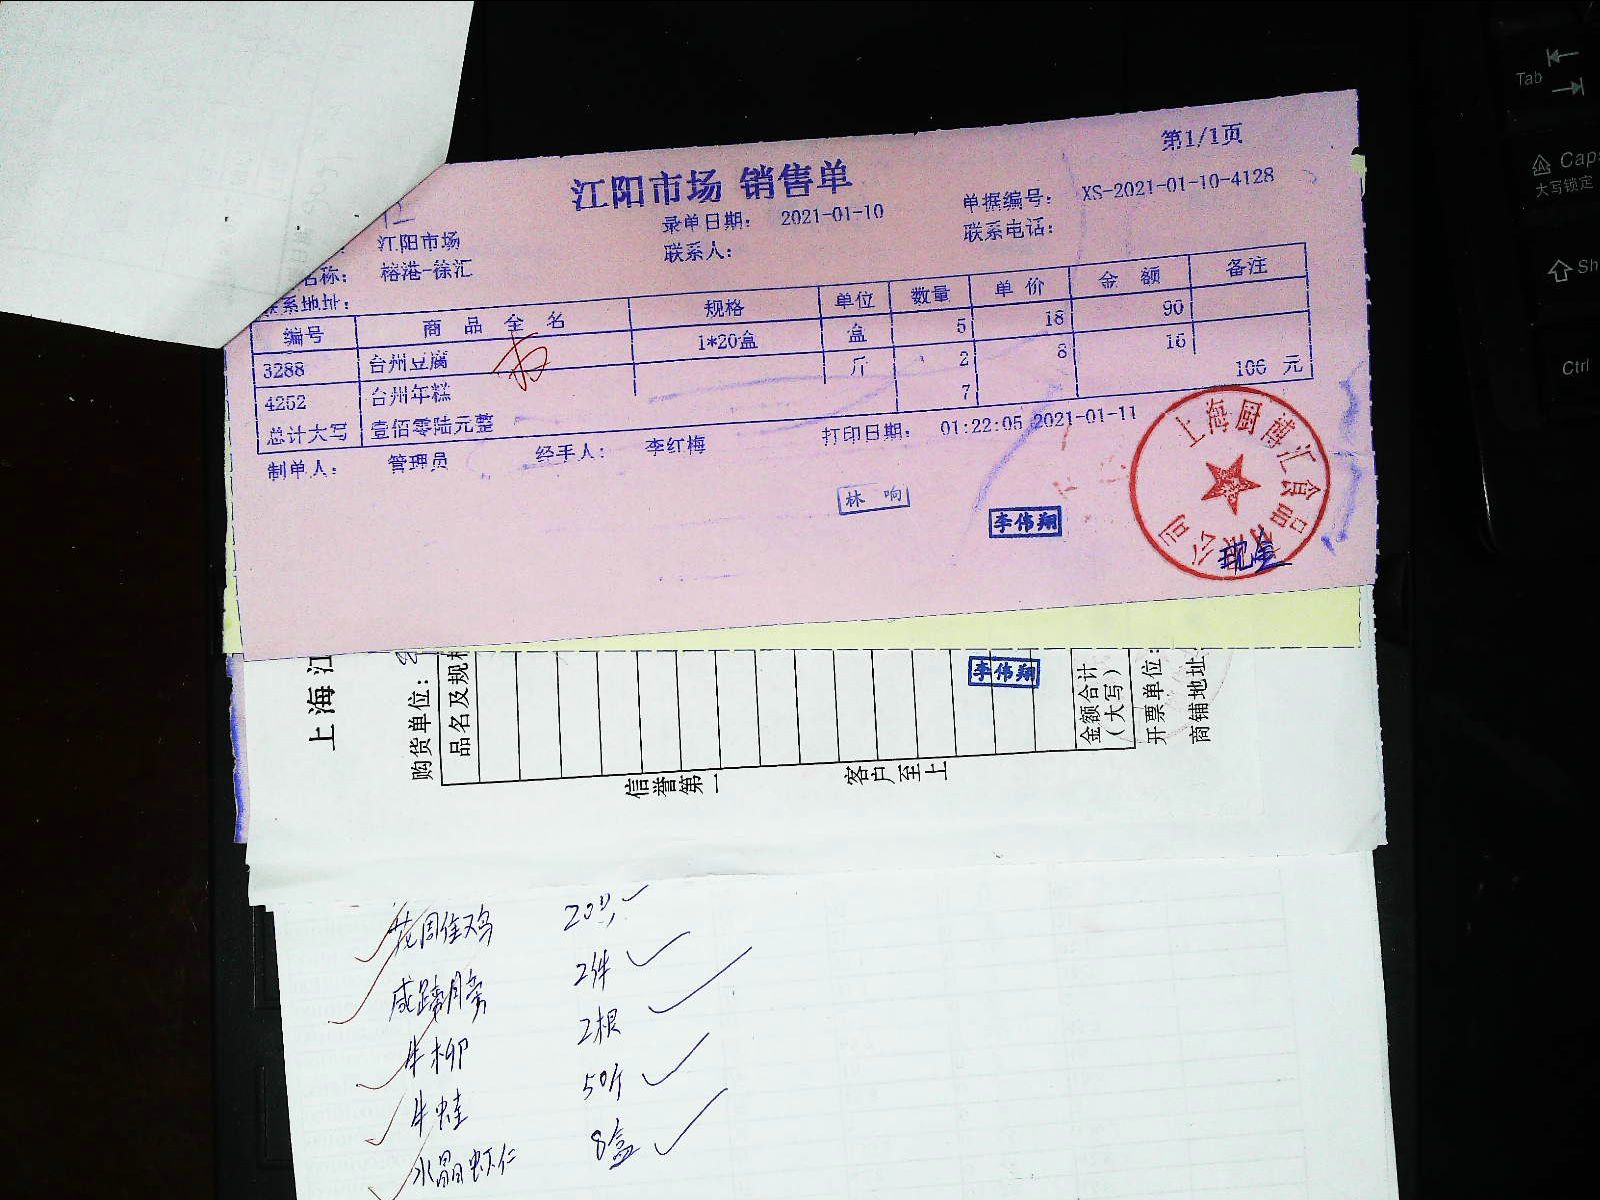 第1/1页
江阳市场 销售单
录单日期: 2021-01-10 单据编号: XS-2021-01-10-4128
江阳市场 联系人: 联系电话:
名称: 榕港-徐汇
系地址:
编号 商品全名 规格 单位 数量 单价 金额 备注
3288 台州豆腐 1*20盒 盒 5 18 90
4252 台州年糕 斤 2 8 16
总计大写 壹佰零陆元整 7 106 元
制单人: 管理员 经手人: 李红梅 打印日期: 01:22:05 2021-01-11
林 响
李伟翔
上海厨博汇食品有限公司
现金
上海江
购货单位:
品名及规格
李伟翔
金额合计
(大写)
开票单位:
商铺地址
信誉第一
客户至上
2件
牛柳 2根
牛蛙 50斤
水晶虾仁 8盒
Tab
Caps
大写锁定
Sh
Ctrl